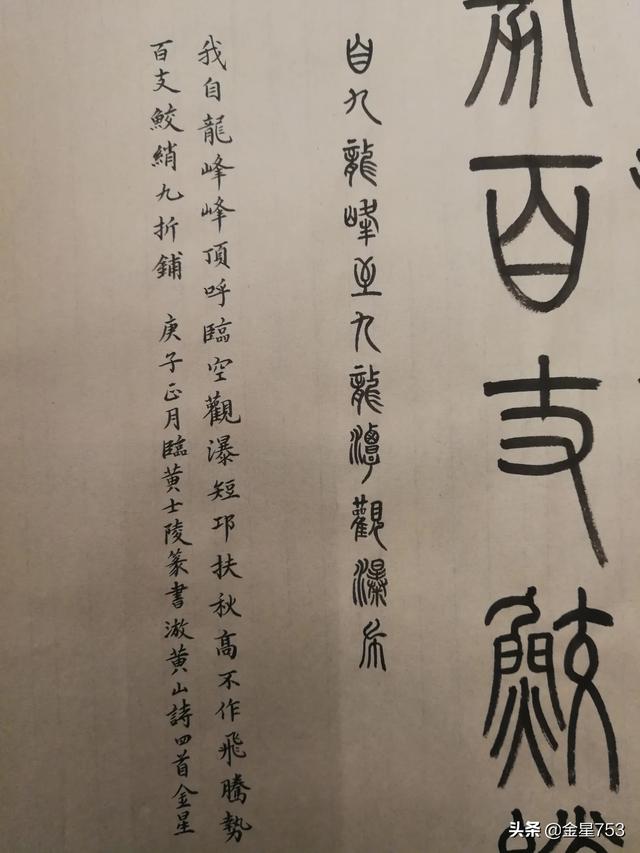 百支鮫
自九龍峰至九龍潭觀瀑布
我自龍峰峰頂呼臨空觀瀑短邛扶秋高不作飛騰勢
百支鮫綃九折鋪 庚子正月臨黄士陵篆書游黄山詩四首金星
头条 @金星753